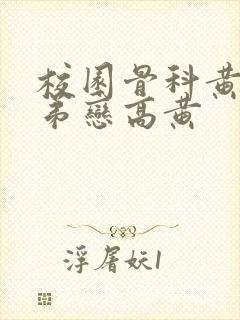 校園骨科黄
弟戀高黄
浮屠妖1